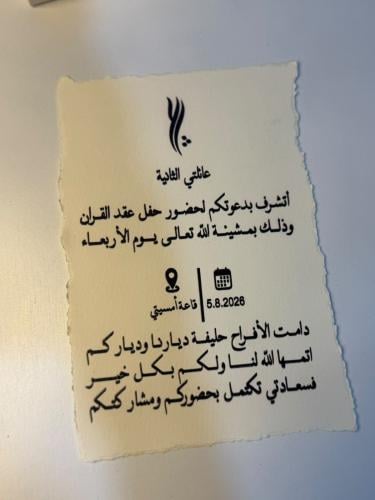 عائلتي الثانية
أتشرف بدعوتكم لحضور حفل عقد القران
وذلك بمشيئة الله تعالى يوم الأربعاء
5.8.2026
قاعة أمسيتي
دامت الأفراح حليفة ديارنا ودياركم
اتمها الله لنا ولكم بكل خير
فسعادتي تكتمل بحضوركم ومشاركتكم